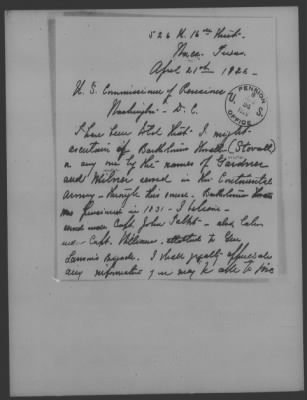 526 N. 16th Street.
Waco. Texas.
April 21st 1926.
U. S. Commissioner of Pensions
Washington - D. C.
PENSION
U. S.
OFFICE
I have been told that I might
ascertain if Bartholomew Stovall (Stovall)
or any one by the names of Gardner
and Milner served in the Continental
Army - through this source. Bartholomew
was pensioned in 1831 - I believe -
served under Capt. John Talbot - also
under Capt. Williams. attached to Gen
Lawson's Brigade. I shall greatly appreciate
any information you may be able to give